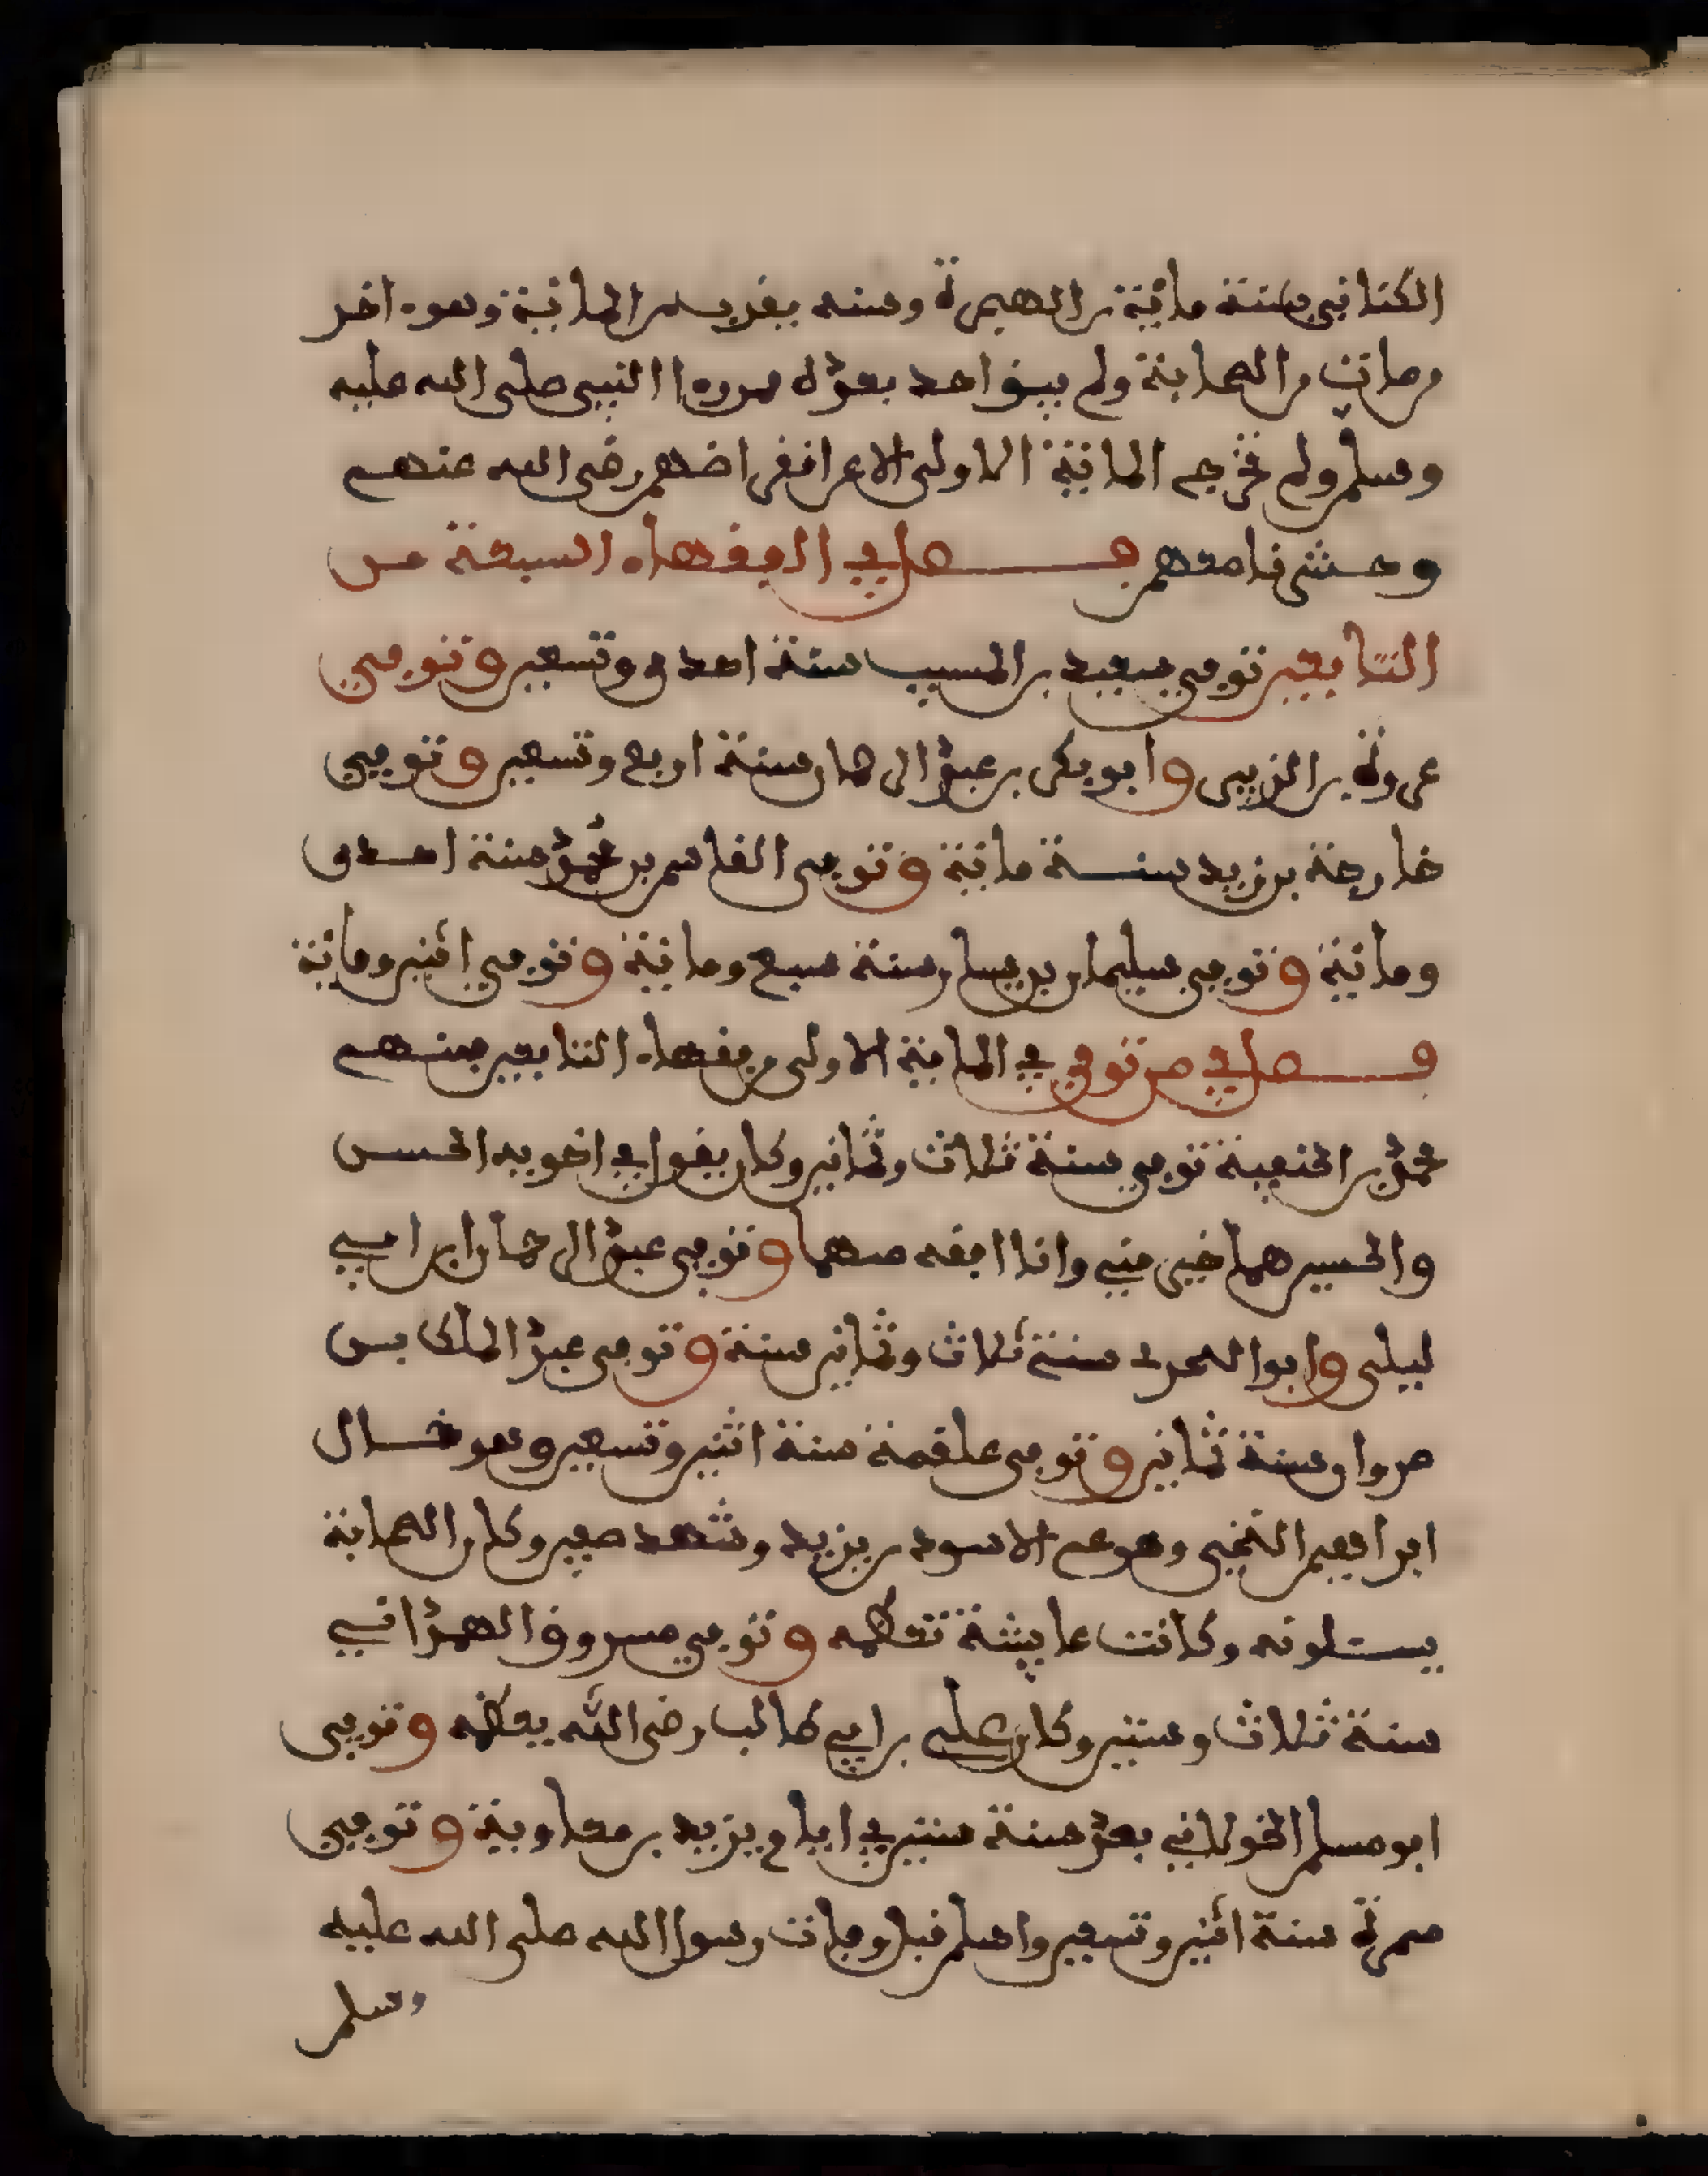 الكناني سنة مائة من الهجرة وسنه يقرب من المائة وهو اخر
من مات من الصحابة ولم يبق احد بعده ممن رءا النبي صلى الله عليه
وسلم ولم تخرج المائة الاولى الا عن انقراضهم رضي الله عنهم
وحشرنا معهم فصل في الفقهاء السبعة من
التابعين توفي سعيد بن المسيب سنة احدى وتسعين وتوفي
عروة بن الزبير وابو بكر بن عبد الرحمان سنة اربع وتسعين وتوفي
خارجة بن زيد سنة مائة وتوفي القاسم بن محمد سنة احدى
ومائة وتوفي سليمان بن يسار سنة سبع ومائة وتوفي اثنين ومائة
فصل في من توفي في المائة الاولى من فقهاء التابعين فمنهم
محمد بن الحنفية توفي سنة ثلاث وثمانين وكان يقول في اخويه الحسن
والحسين هما خير مني وانا افقه منهما وتوفي عبد الرحمان ابن ابي
ليلى وابوا البحتري سنة ثلاث وثمانين سنة وتوفي عبد الملك بن
مروان سنة ثمانين وتوفي علقمة سنة اثنين وتسعين وهو خال
ابراهيم النخعي وهو عم الاسود بن يزيد وشهد صفين وكان الصحابة
يستلونه وكانت عايشة تعظمه وتوفي مسروق الهمداني
سنة ثلاث وستين وكان علي بن ابي طالب رضي الله يعظمه وتوفي
ابو مسلم الخولاني بعد سنة ستين في ايام يزيد بن معاوية وتوفي
مرة سنة اثنين وتسعين واسلم قبل وفات رسول الله صلى الله عليه
وسلم